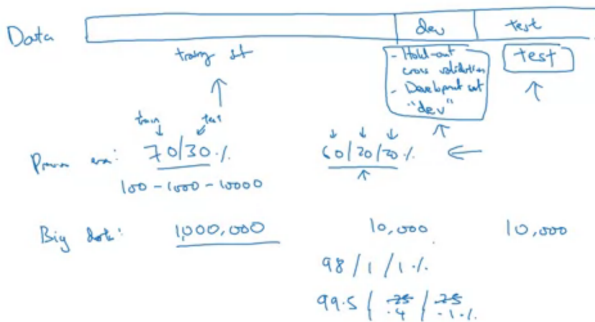 Data
dev test
training set
- Hold-out
cross validation
- Development set
"dev"
test
train test
Previous era: 70/30% 60/20/20%
100-1000-10000
Big data: 1,000,000 10,000 10,000
98/1/1%
99.5/.25/.25
.4/.1%